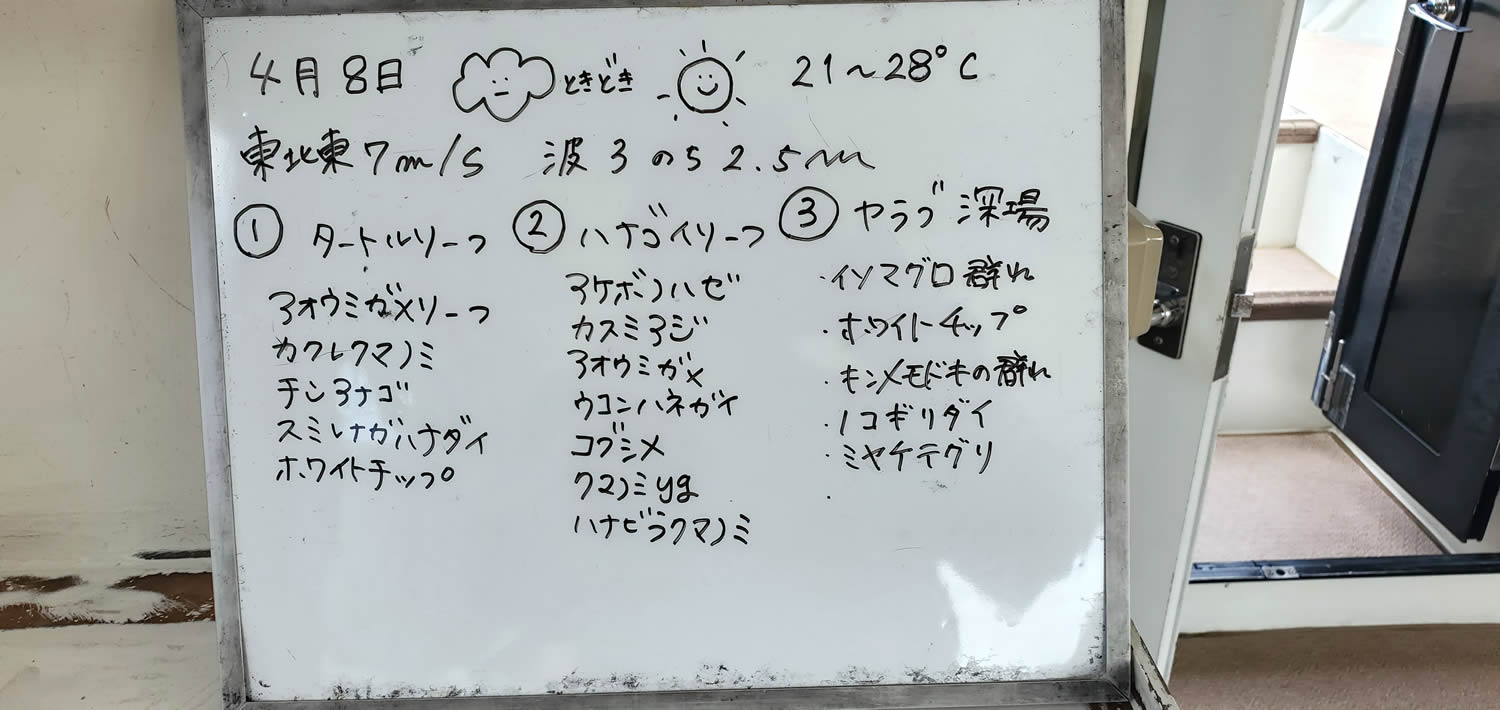 4月8日 ときどき 21～28℃
東北東7m/s 波3のち2.5m
① タートルリーフ
アオウミガメリーフ
カクレクマノミ
チンアナゴ
スミレナガハナダイ
ホワイトチップ
② ハナゴイリーフ
アケボノハゼ
カスミアジ
アオウミガメ
ウコンハネガイ
コブシメ
クマノミyg
ハナビラクマノミ
③ ヤラブ深場
・イソマグロ群れ
・ホワイトチップ
・キンメモドキの群れ
・ノコギリダイ
・ミヤケテグリ
・